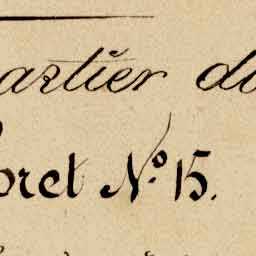 artier du
oret Nº 15.